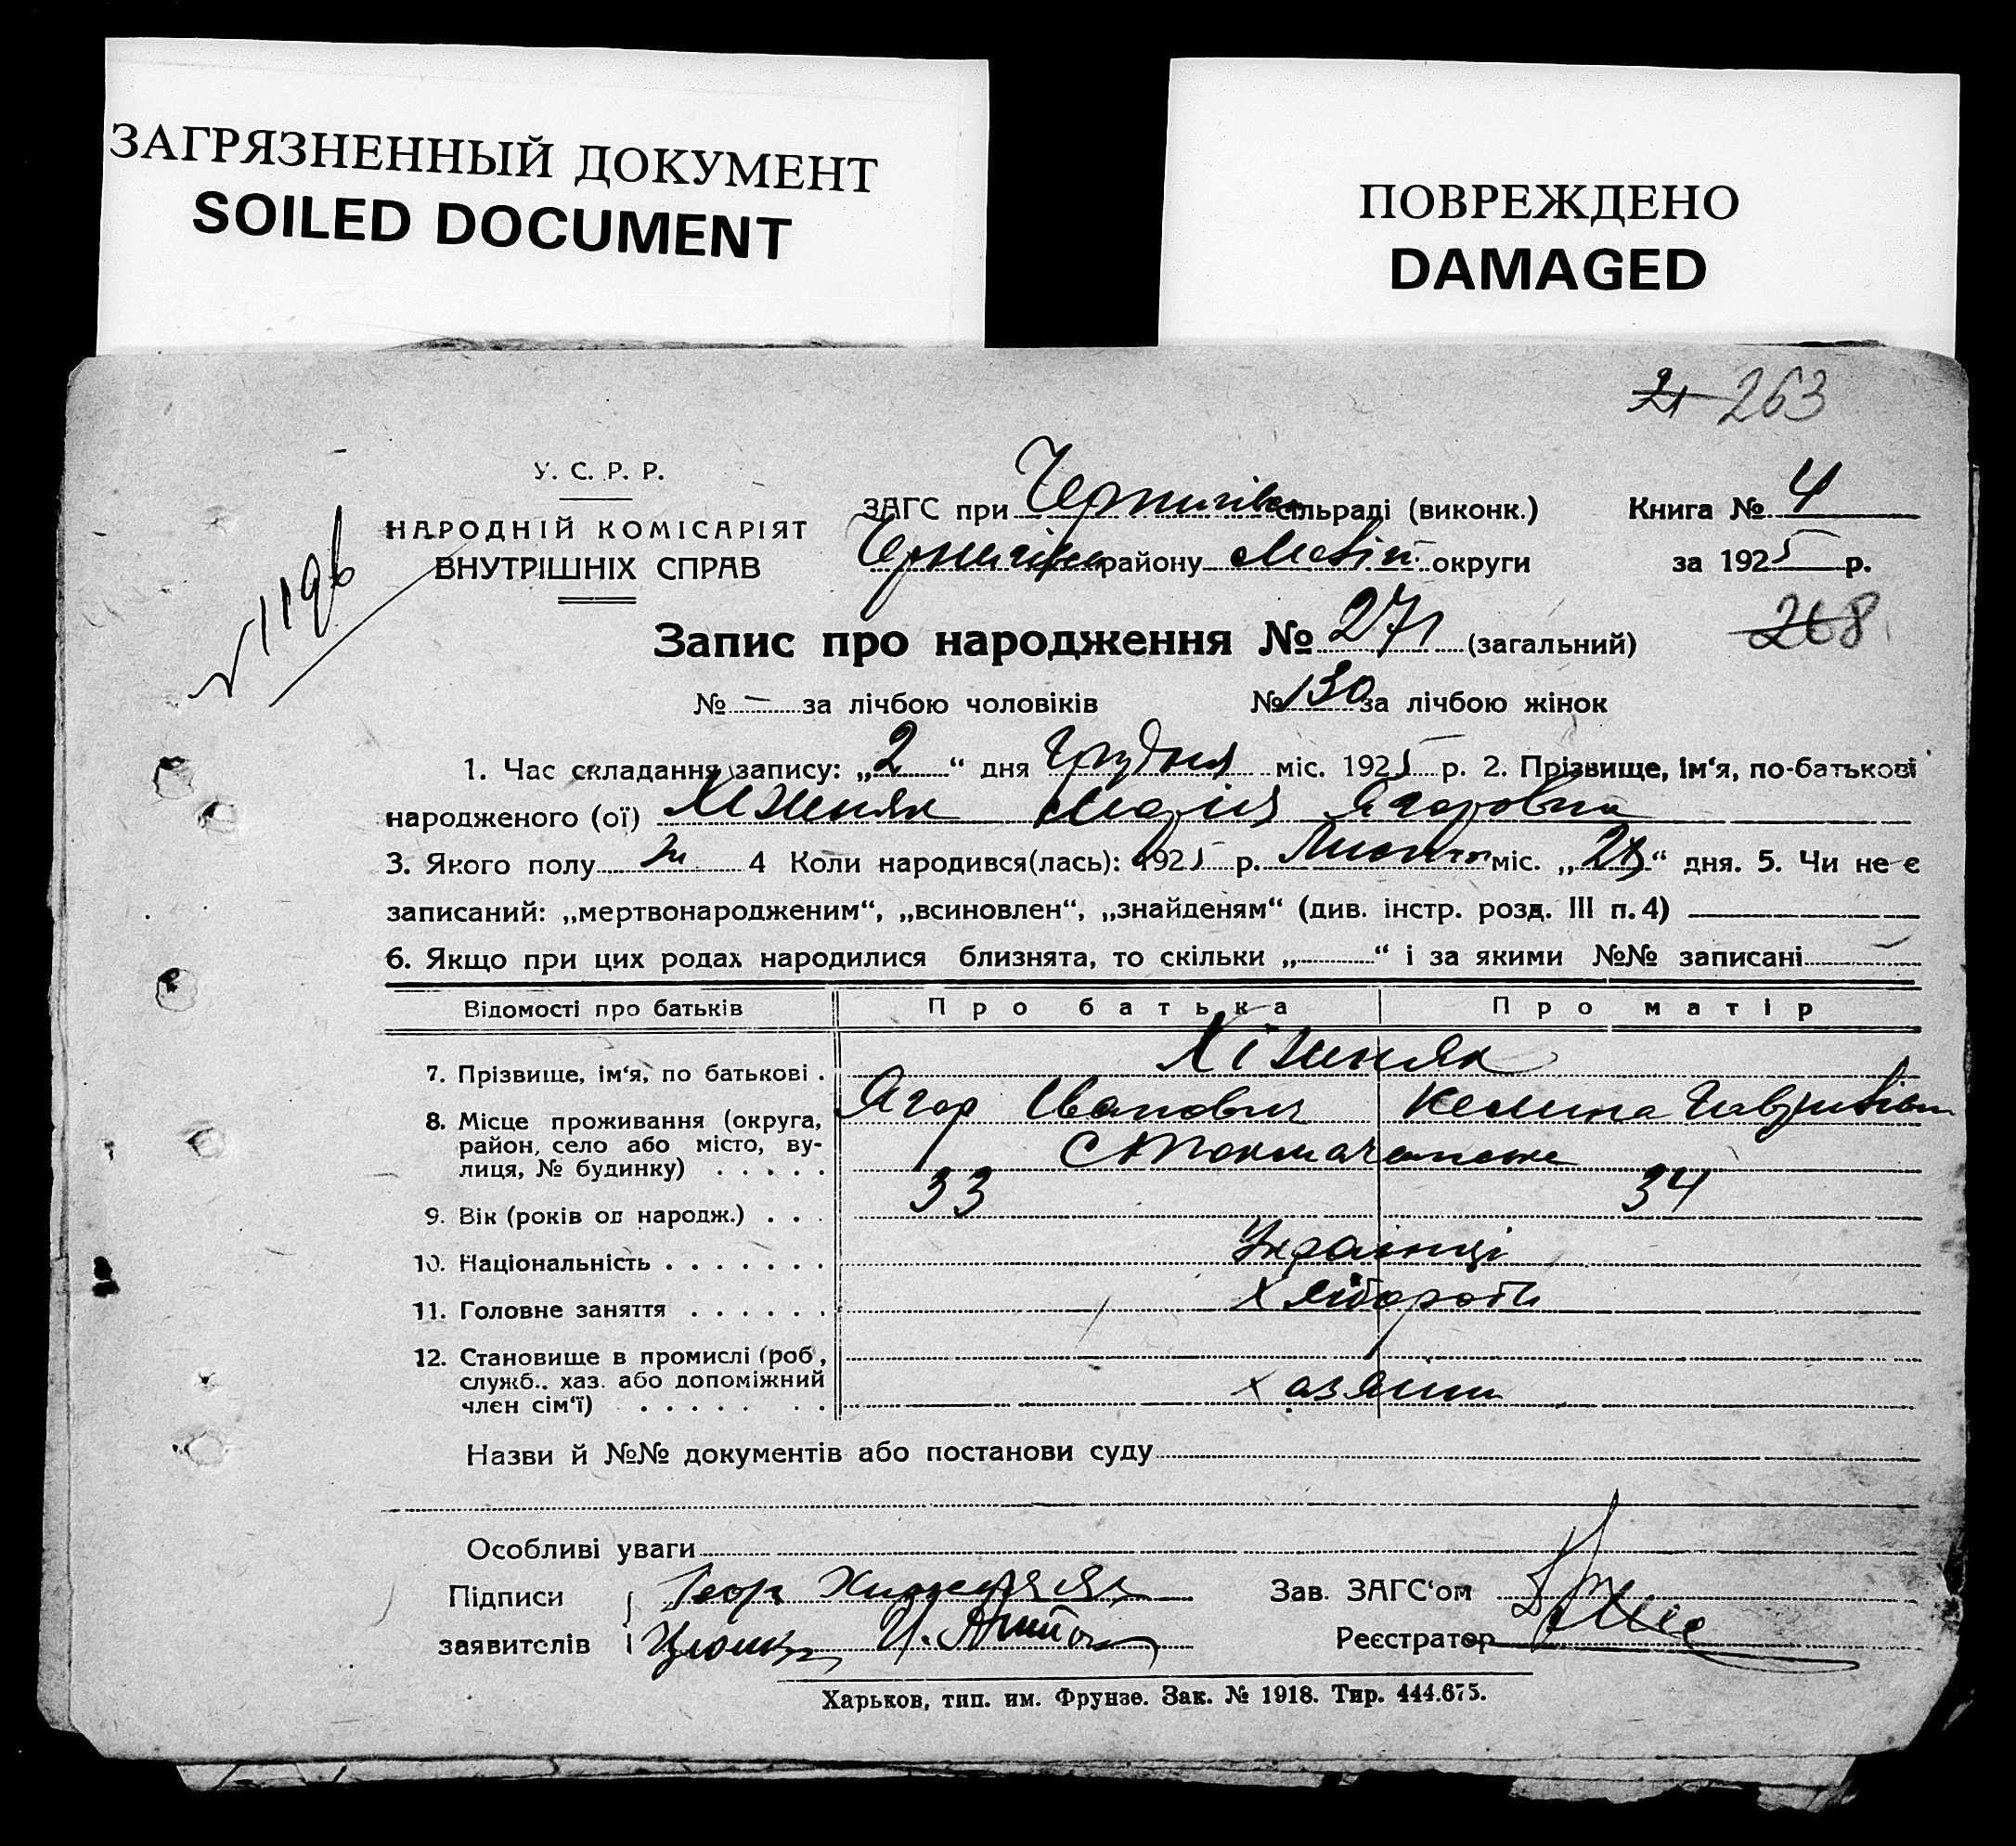 ЗАГРЯЗНЕННЫЙ ДОКУМЕНТ
SOILED DOCUMENT
ПОВРЕЖДЕНО
DAMAGED
21 263
У. С. Р. Р.
НАРОДНІЙ КОМІСАРІЯТ
ВНУТРІШНІХ СПРАВ
1196
ЗАГС при Чернигівс сільраді (виконк.) Книга № 4
району Меліт округи за 1925 р.
Запис про народження № 271 (загальний) 268
№ — за лічбою чоловіків № 130 за лічбою жінок
1. Час складання запису: „2“ дня Грудня міс. 1925 р. 2. Прізвище, ім‘я, по-батькові
народженого (ої) Хіжняк Марія Ягоровна
3. Якого полу ж 4 Коли народився(лась): 1925 р. міс. „ “ дня. 5. Чи не є
записаний: „мертвонародженим“, „всиновлен“, „знайденям“ (див. інстр. розд. III п. 4)
6. Якщо при цих родах народилися близнята, то скільки „ “ і за якими №№ записані
Відомості про батьків Про батька Про матір
7. Прізвище, ім‘я, по батькові . Хіжняк
Ягор Іванович Келина
8. Місце проживання (округа,
район, село або місто, ву-
лиця, № будинку) . . . . .
9. Вік (років од народж.) . . . 33 34
10. Національність . . . . . . . Українці
11. Головне заняття . . . . . . Хлібороби
12. Становище в промислі (роб,
служб., хаз. або допоміжний
член сім‘ї) . . . . . . . хазяини
Назви й №№ документів або постанови суду
Особливі уваги
Підписи Зав. ЗАГС‘ом
заявителів Реєстратор
Харьков, тип. им. Фрунзе. Зак. № 1918. Тир. 444.675.